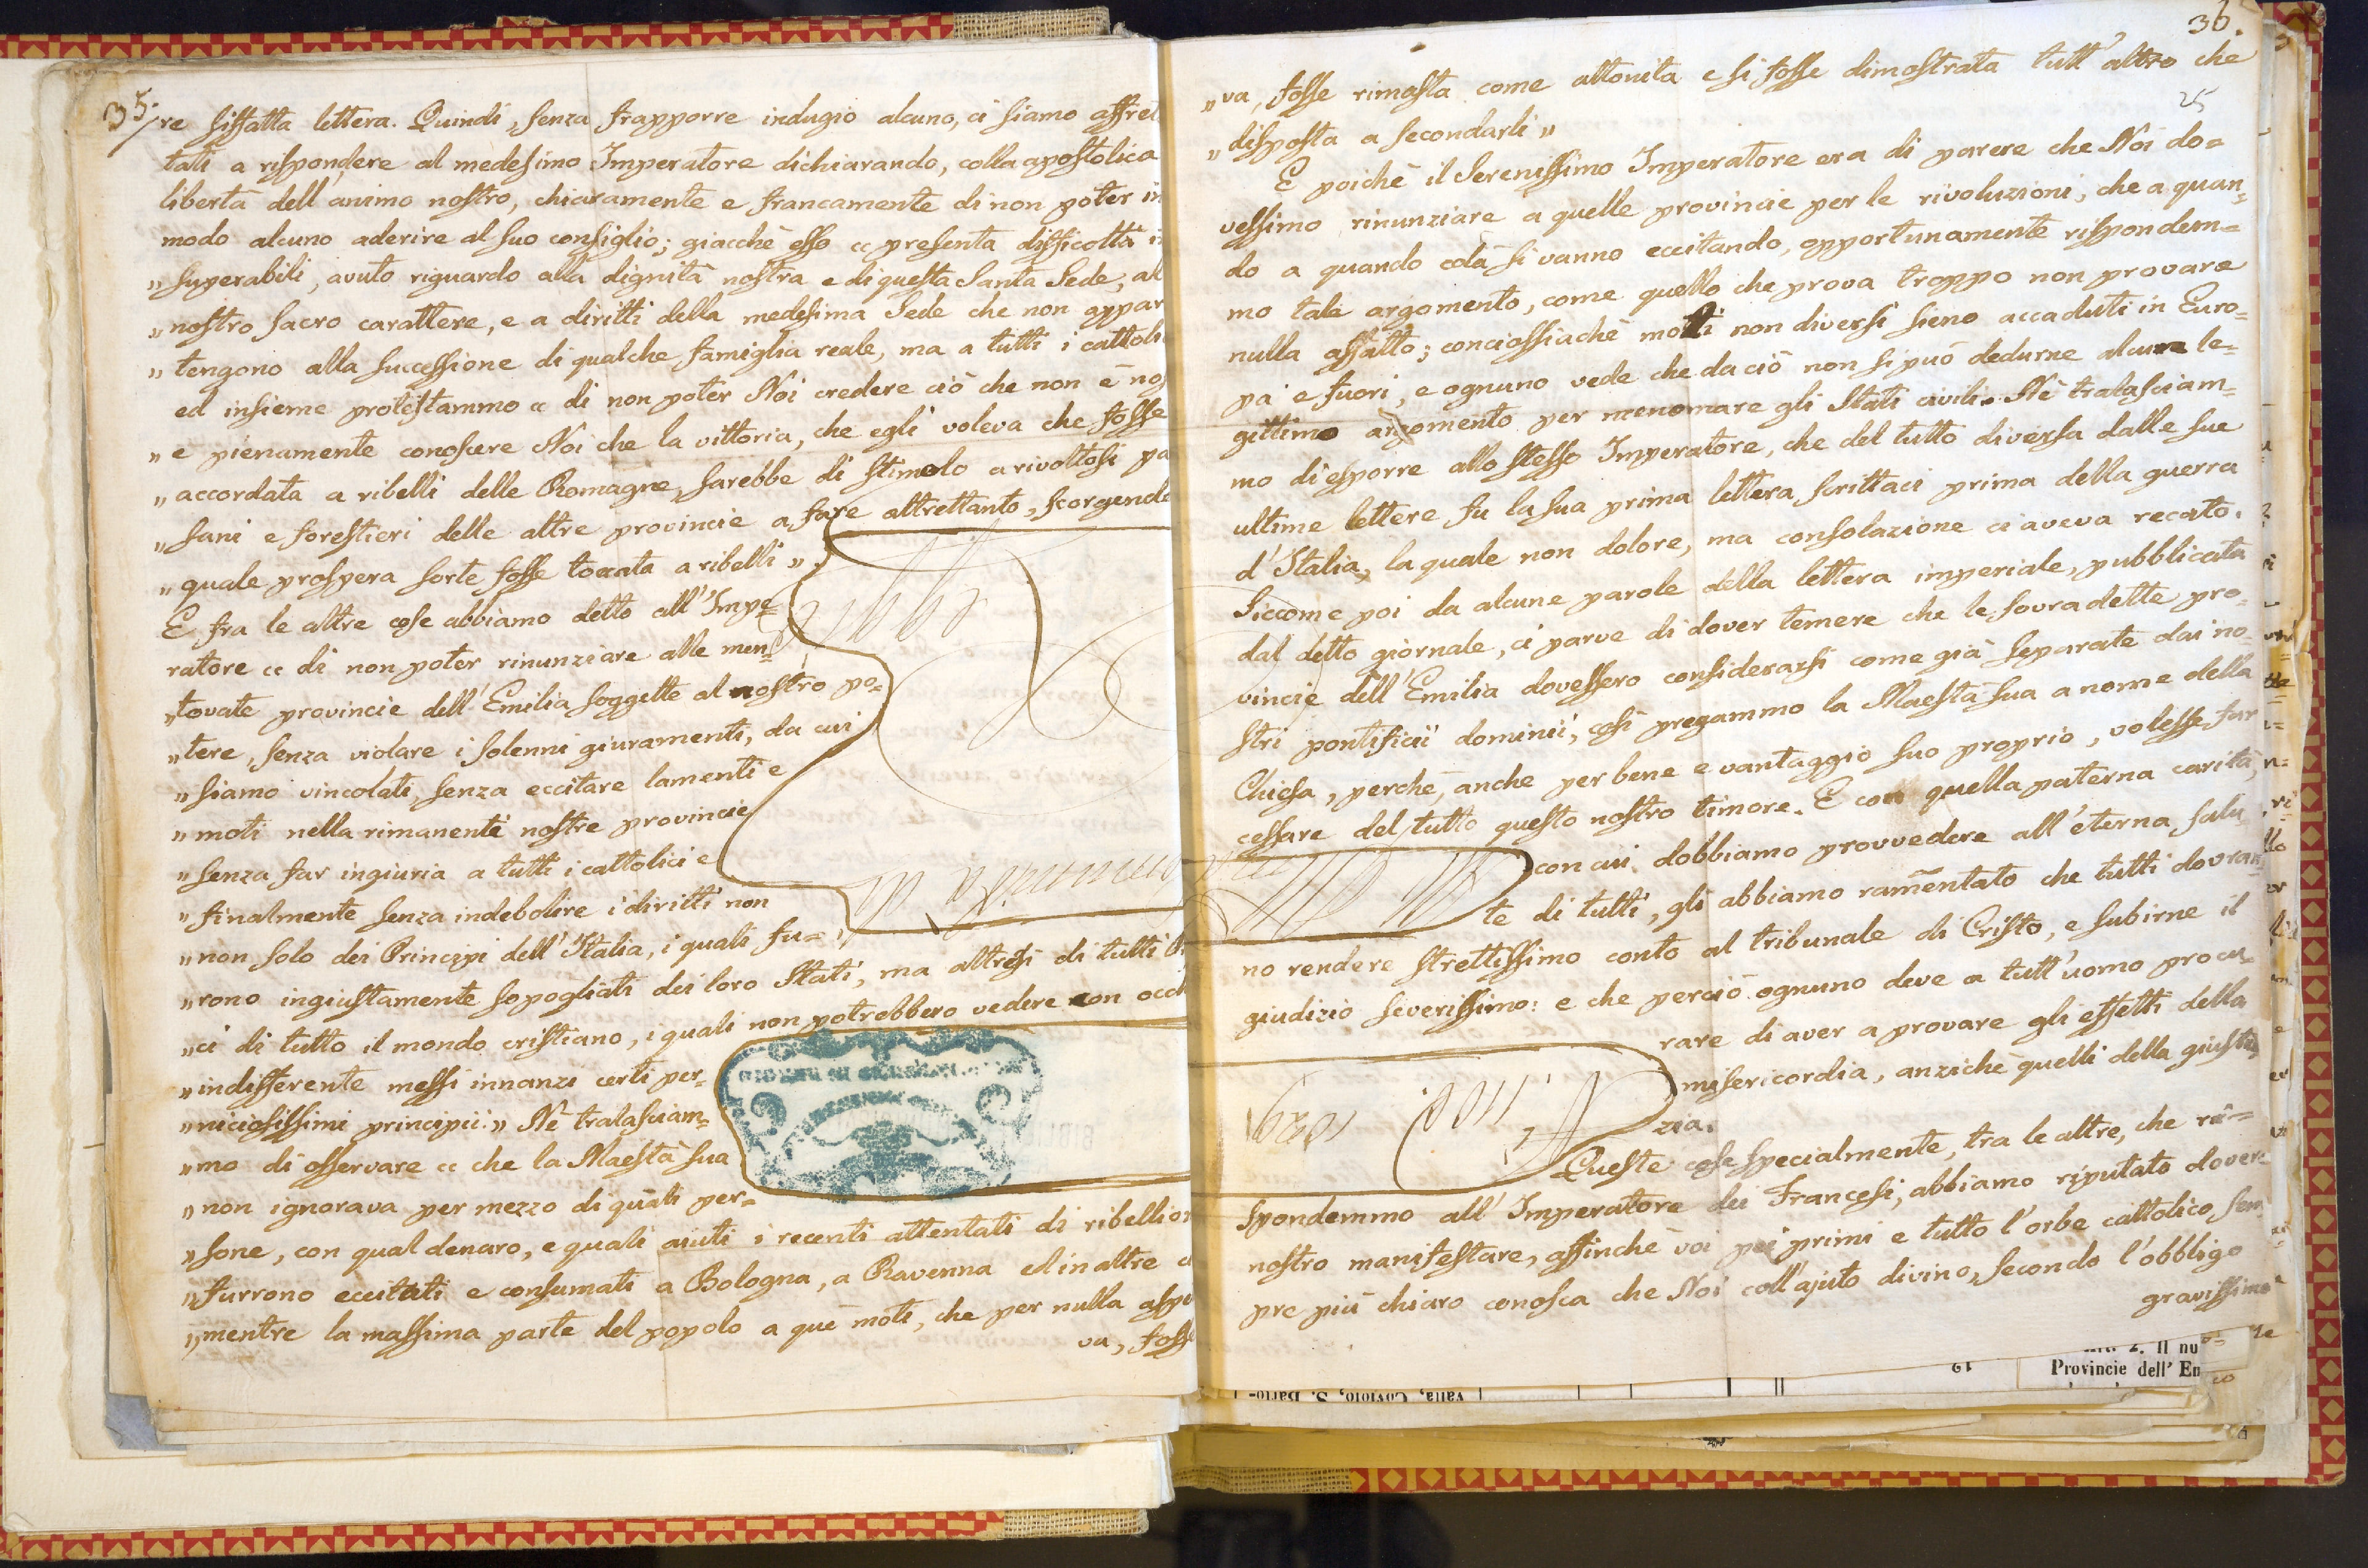 35.
re siffatta lettera. Quindi, senza frapporre indugio alcuno, ci siamo affret
tati a rispondere al medesimo Imperatore dichiarando, colla apostolica
libertà dell'animo nostro, chiaramente e francamente di non poter in
modo alcuno aderire al suo consiglio; giacchè esso « presenta difficoltà i
„ superabili, avuto riguardo alla dignità nostra e di questa Santa Sede, al
„ nostro sacro carattere, e a diritti della medesima Sede che non appar
„ tengono alla successione di qualche famiglia reale, ma a tutti i cattoli
ed insieme protestammo « di non poter Noi credere ciò che non è nos
„ e pienamente conoscere Noi che la vittoria, che egli voleva che fosse
„ accordata a ribelli delle Romagne, sarebbe di stimolo a rivoltosi pa
„ sani e forestieri delle altre provincie a fare altrettanto, scorgendo
„ quale prospera sorte fosse toccata a ribelli „.
E fra le altre cose abbiamo detto all'Impe=
ratore « di non poter rinunziare alle men=
„ tovate provincie dell'Emilia soggette al nostro po=
„ tere, senza violare i solenni giuramenti, da cui
„ siamo vincolati, senza eccitare lamenti e
„ moti nella rimanenti nostre provincie
„ senza far ingiuria a tutti i cattolici e
„ finalmente senza indebolire i diritti non
„ non solo dei Principi dell'Italia, i quali fu=
„ rono ingiustamente sopogliati dei loro Stati, ma altresì di tutti
„ ci di tutto il mondo cristiano, i quali non potrebbero vedere con occh
„ indifferente messi innanzi certi per=
„ niciosissimi principii. „ Nè tralasciam=
„ mo di osservare « che la Maestà sua
„ non ignorava per mezzo di quali per=
„ sone, con qual denaro, e quali aiuti i recenti attentati di ribellion
„ furrono eccitati e consumati a Bologna, a Ravenna ed in altre c
„ mentre la massima parte del popolo a què moti, che per nulla aspe
va, fosse
36.
25
„ va, fosse rimasta come attonita e si fosse dimostrata tutt'altro che
„ disposta a secondarli „
E poichè il Serenissimo Imperatore era di parere che Noi do=
vessimo rinunziare a quelle provincie per le rivoluzioni, che a quan=
do a quando colà si vanno eccitando, opportunamente rispondem=
mo tale argomento, come quello che prova troppo non provare
nulla affatto; conciossiachè moti non diversi sieno accaduti in Euro=
pa e fuori, e ognuno vede che da ciò non si può dedurne alcun le=
gittimo argomento per menomare gli Stati civili. Nè tralasciam=
mo di esporre allo stesso Imperatore, che del tutto diversa dalle sue
ultime lettere fu la sua prima lettera scrittaci prima della guerra
d'Italia, la quale non dolore, ma consolazione ci aveva recato.
Siccome poi da alcune parole della lettera imperiale, pubblicata
dal detto giornale, ci parve di dover temere che le sovradette pro=
vincie dell'Emilia dovessero considerarsi come già separate dai no=
stri pontificii dominii, così pregammo la Maestà sua a nome della
Chiesa, perchè, anche per bene e vantaggio suo proprio, volesse far
cessare del tutto questo nostro timore. E con quella paterna carità,
con cui dobbiamo provvedere all'eterna salu
te di tutti, gli abbiamo rammentato che tutti dovran
no rendere strettissimo conto al tribunale di Cristo, e subirne il
giudizio severissimo: e che perciò ognuno deve a tutt'uomo procu
rare di aver a provare gli effetti della
misericordia, anzichè quelli della giusti
zia.
Queste cose specialmente, tra le altre, che ri=
spondemmo all'Imperatore dei Francesi, abbiamo riputato dovere
nostro manifestare, affinchè voi pei primi e tutto l'orbe cattolico, sem
pre più chiaro conosca che Noi coll'ajuto divino, secondo l'obbligo
gravissimo
Provincie dell' En